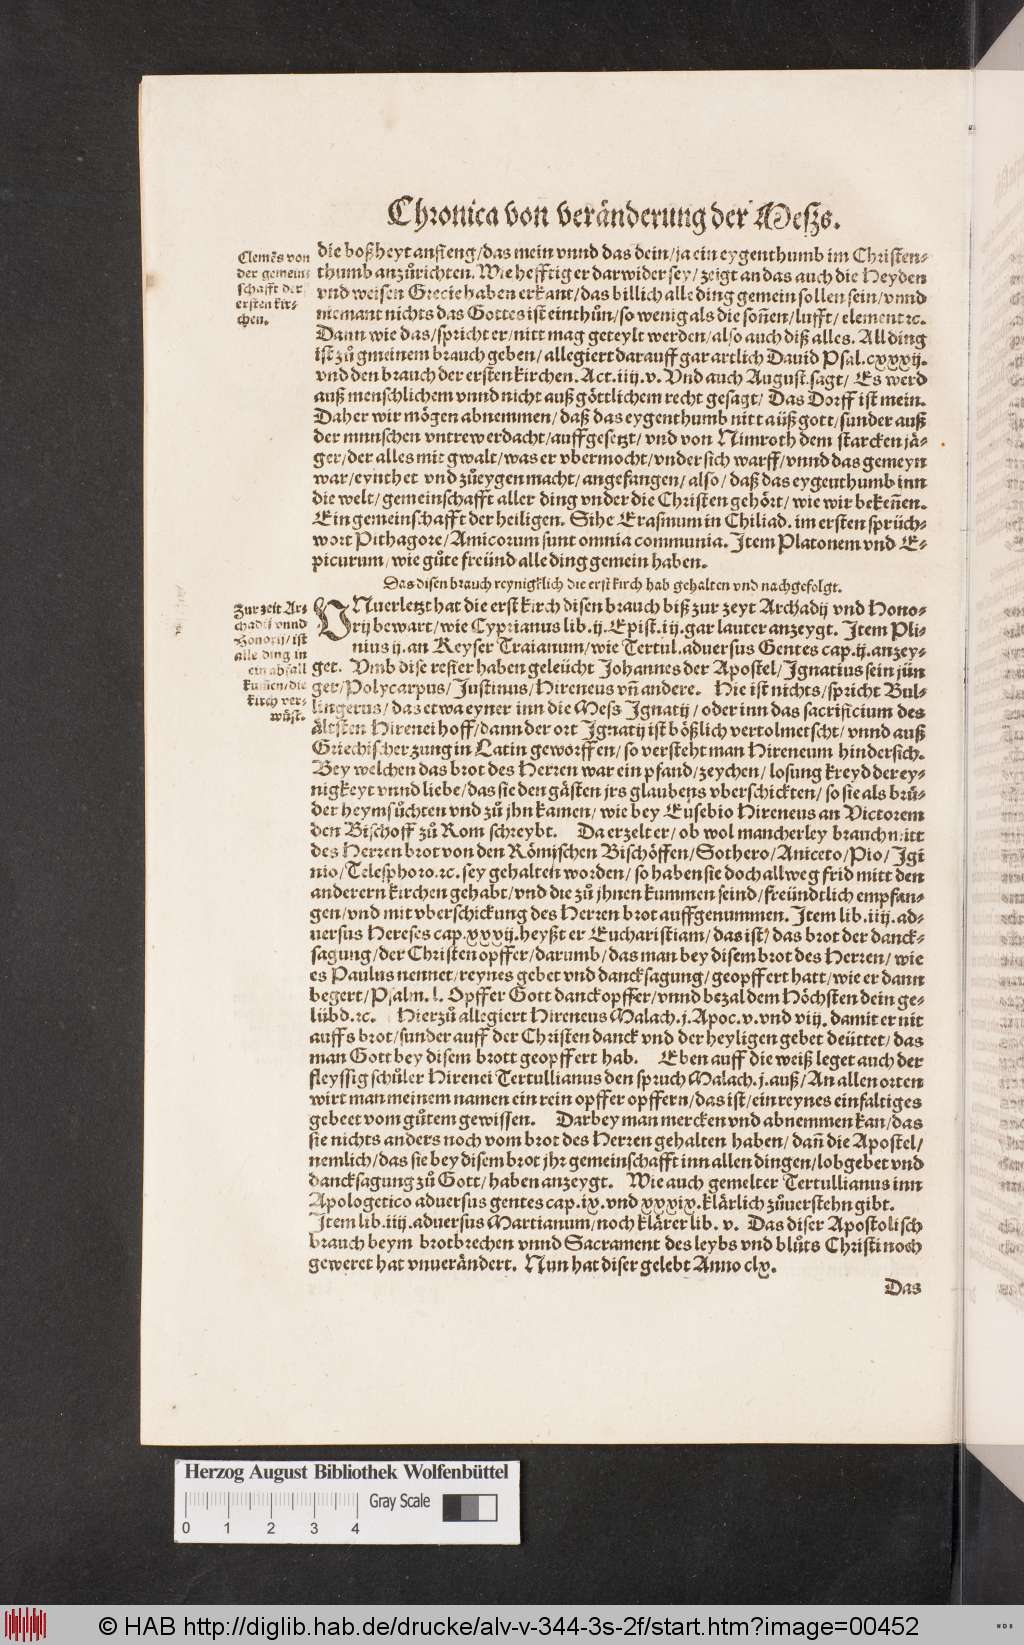 Chronica von veränderung der Meſzs.
Clemẽs von
der gemein⸗
ſchafft der
erſten kir⸗
chen.
die boßheyt anfieng/das mein vnnd das dein/ja ein eygenthumb im Chriſten⸗
thumb anzůrichten. Wie hefftig er darwider ſey/ zeigt an das auch die Heyden
vnd weiſen Grecie haben erkant/das billich alle ding gemein ſollen ſein/vnnd
niemant nichts das Gottes iſt einthůn/so wenig als die ſoñen/lufft/ element ꝛc.
Dann wie das/ſpricht er/nitt mag geteylt werden/alſo auch diß alles. All ding
iſt zů gmeinem brauch geben/ allegiert darauff gar artlich David Pſal.cxxxij.
vnd den brauch der erſten kirchen. Act.iiij.v. Vnd auch Auguſt.ſagt/ Es werd
auß menſchlichem vnnd nicht auß göttlichem recht geſagt/ Das Dorff iſt mein.
Daher wir mögen abnemmen/ daß das eygenthumb nitt aüß gott/ſunder auß
der mnnſchen vntrew erdacht/auffgeſetzt/ vnd von Nimroth dem ſtarcken jä⸗
ger/der alles mit gwalt/was er vbermocht/vnder ſich warff/vnnd das gemeyn
war/eynthet vnd zůeygen macht/angefangen/alſo/ daß das eygenthumb inn
die welt/gemeinſchafft aller ding vnder die Chriſten gehört/ wie wir bekeñen.
Ein gemeinſchafft der heiligen. Sihe Eraſmum in Chiliad. im erſten ſprüch⸗
wort Pithagore/Amicorum ſunt omnia communia. Item Platonem vnd E⸗
picurum/wie gůte freünd alle ding gemein haben.
Das diſen brauch reyniglich die erſt kirch hab gehalten vnd nachgefolgt.
Zur zeit Ar⸗
chadij vnnd
Honorij/iſt
alle ding in
ein abfall
kum̃en/die
kirch ver⸗
wüſt.
VNuerletzt hat die erſt kirch diſen brauch biß zur zeyt Archadij vnd Hono⸗
rij bewart/wie Cyprianus lib.ij.Epiſt.ij.gar lauter anzeygt. Item Pli⸗
nius ij.an Keyſer Traianum/wie Tertul.adverſus Gentes cap.ij.anzey⸗
get. Vmb diſe reſſer haben geleücht Johannes der Apoſtel/Ignatius ſein jün
ger/Polycarpus/ Juſtinus/Hireneus vñ andere. Hie iſt nichts/ſpricht Bul⸗
lingerus/ das etwa eyner inn die Meſs Ignatij/oder inn das ſacrificium des
älteſten Hirenei hoff/dann der ort Ignatij iſt bößlich vertolmetſcht/vnnd auß
Griechiſcher zung in Latin geworffen/ſo verſteht man Hireneum hinderſich.
Bey welchen das brot des Herren war ein pfand/zeychen/loſung kreyd der ey⸗
nigkeyt vnnd liebe/das ſie den gäſten jrs glaubens vberſchickten/ſo ſie als brü⸗
der heymſůchten vnd zů jhn kamen/wie bey Euſebio Hireneus an Victorem
den Biſchoff zů Rom ſchreybt. Da erzelt er/ob wol mancherley brauch mitt
des Herren brot von den Römiſchen Biſchöffen/Sothero/Aniceto/Pio/Igi
nio/Teleſphoro.ꝛc.ſey gehalten worden/ſo haben ſie doch allweg frid mitt den
anderern kirchen gehabt/vnd die zů jhnen kummen ſeind/freündtlich empfan⸗
gen/vnd mit vberſchickung des Herren brot auffgenummen. Item lib.iiij.ad⸗
uerſus Hereſes cap.xxxij.heyßt er Euchariſtiam/das iſt/das brot der danck⸗
ſagung/der Chriſten opffer/darumb/das man bey diſem brot des Herren/wie
es Paulus nennet/reynes gebet vnd danckſagung/geopffert hatt/wie er dann
begert/Pſalm.l. Opffer Gott danckopffer/vnnd bezal dem Höchſten dein ge⸗
lübd.ꝛc. Hierzů allegiert Hireneus Malach.j.Apoc.v.vnd viij.damit er nit
auffs brot/ſunder auff der Chriſten danck vnd der heyligen gebet deüttet/das
man Gott bey diſem brott geopffert hab. Eben auff die weiß leget auch der
fleyſſig ſchüler Hirenei Tertullianus den ſpruch Malach.j.auß/An allen orten
wirt man meinem namen ein rein opffer opffern/das iſt/ein reynes einfaltiges
gebeet vom gůtem gewiſſen. Darbey man mercken vnd abnemmen kan/das
ſie nichts anders noch vom brot des Herren gehalten haben/dañ die Apoſtel/
nemlich/das ſie bey diſem brot jhr gemeinſchafft inn allen dingen/lobgebet vnd
danckſagung zů Gott/haben anzeygt. Wie auch gemelter Tertullianus inn
Apologetico adverſus gentes cap.ix.vnd xxxix.klärlich zůverſtehn gibt.
Item lib.iiij.adverſus Martianum/noch klärer lib. v. Das diſer Apoſtoliſch
brauch beym brotbrechen vnnd Sacrament des leybs vnd blůts Chriſti noch
geweret hat vnuerändert. Nun hat diſer gelebt Anno clx.
Das
Herzog August Bibliothek Wolfenbüttel
Gray Scale
0 1 2 3 4
© HAB http://diglib.hab.de/drucke/alv-v-344-3s-2f/start.htm?image=00452